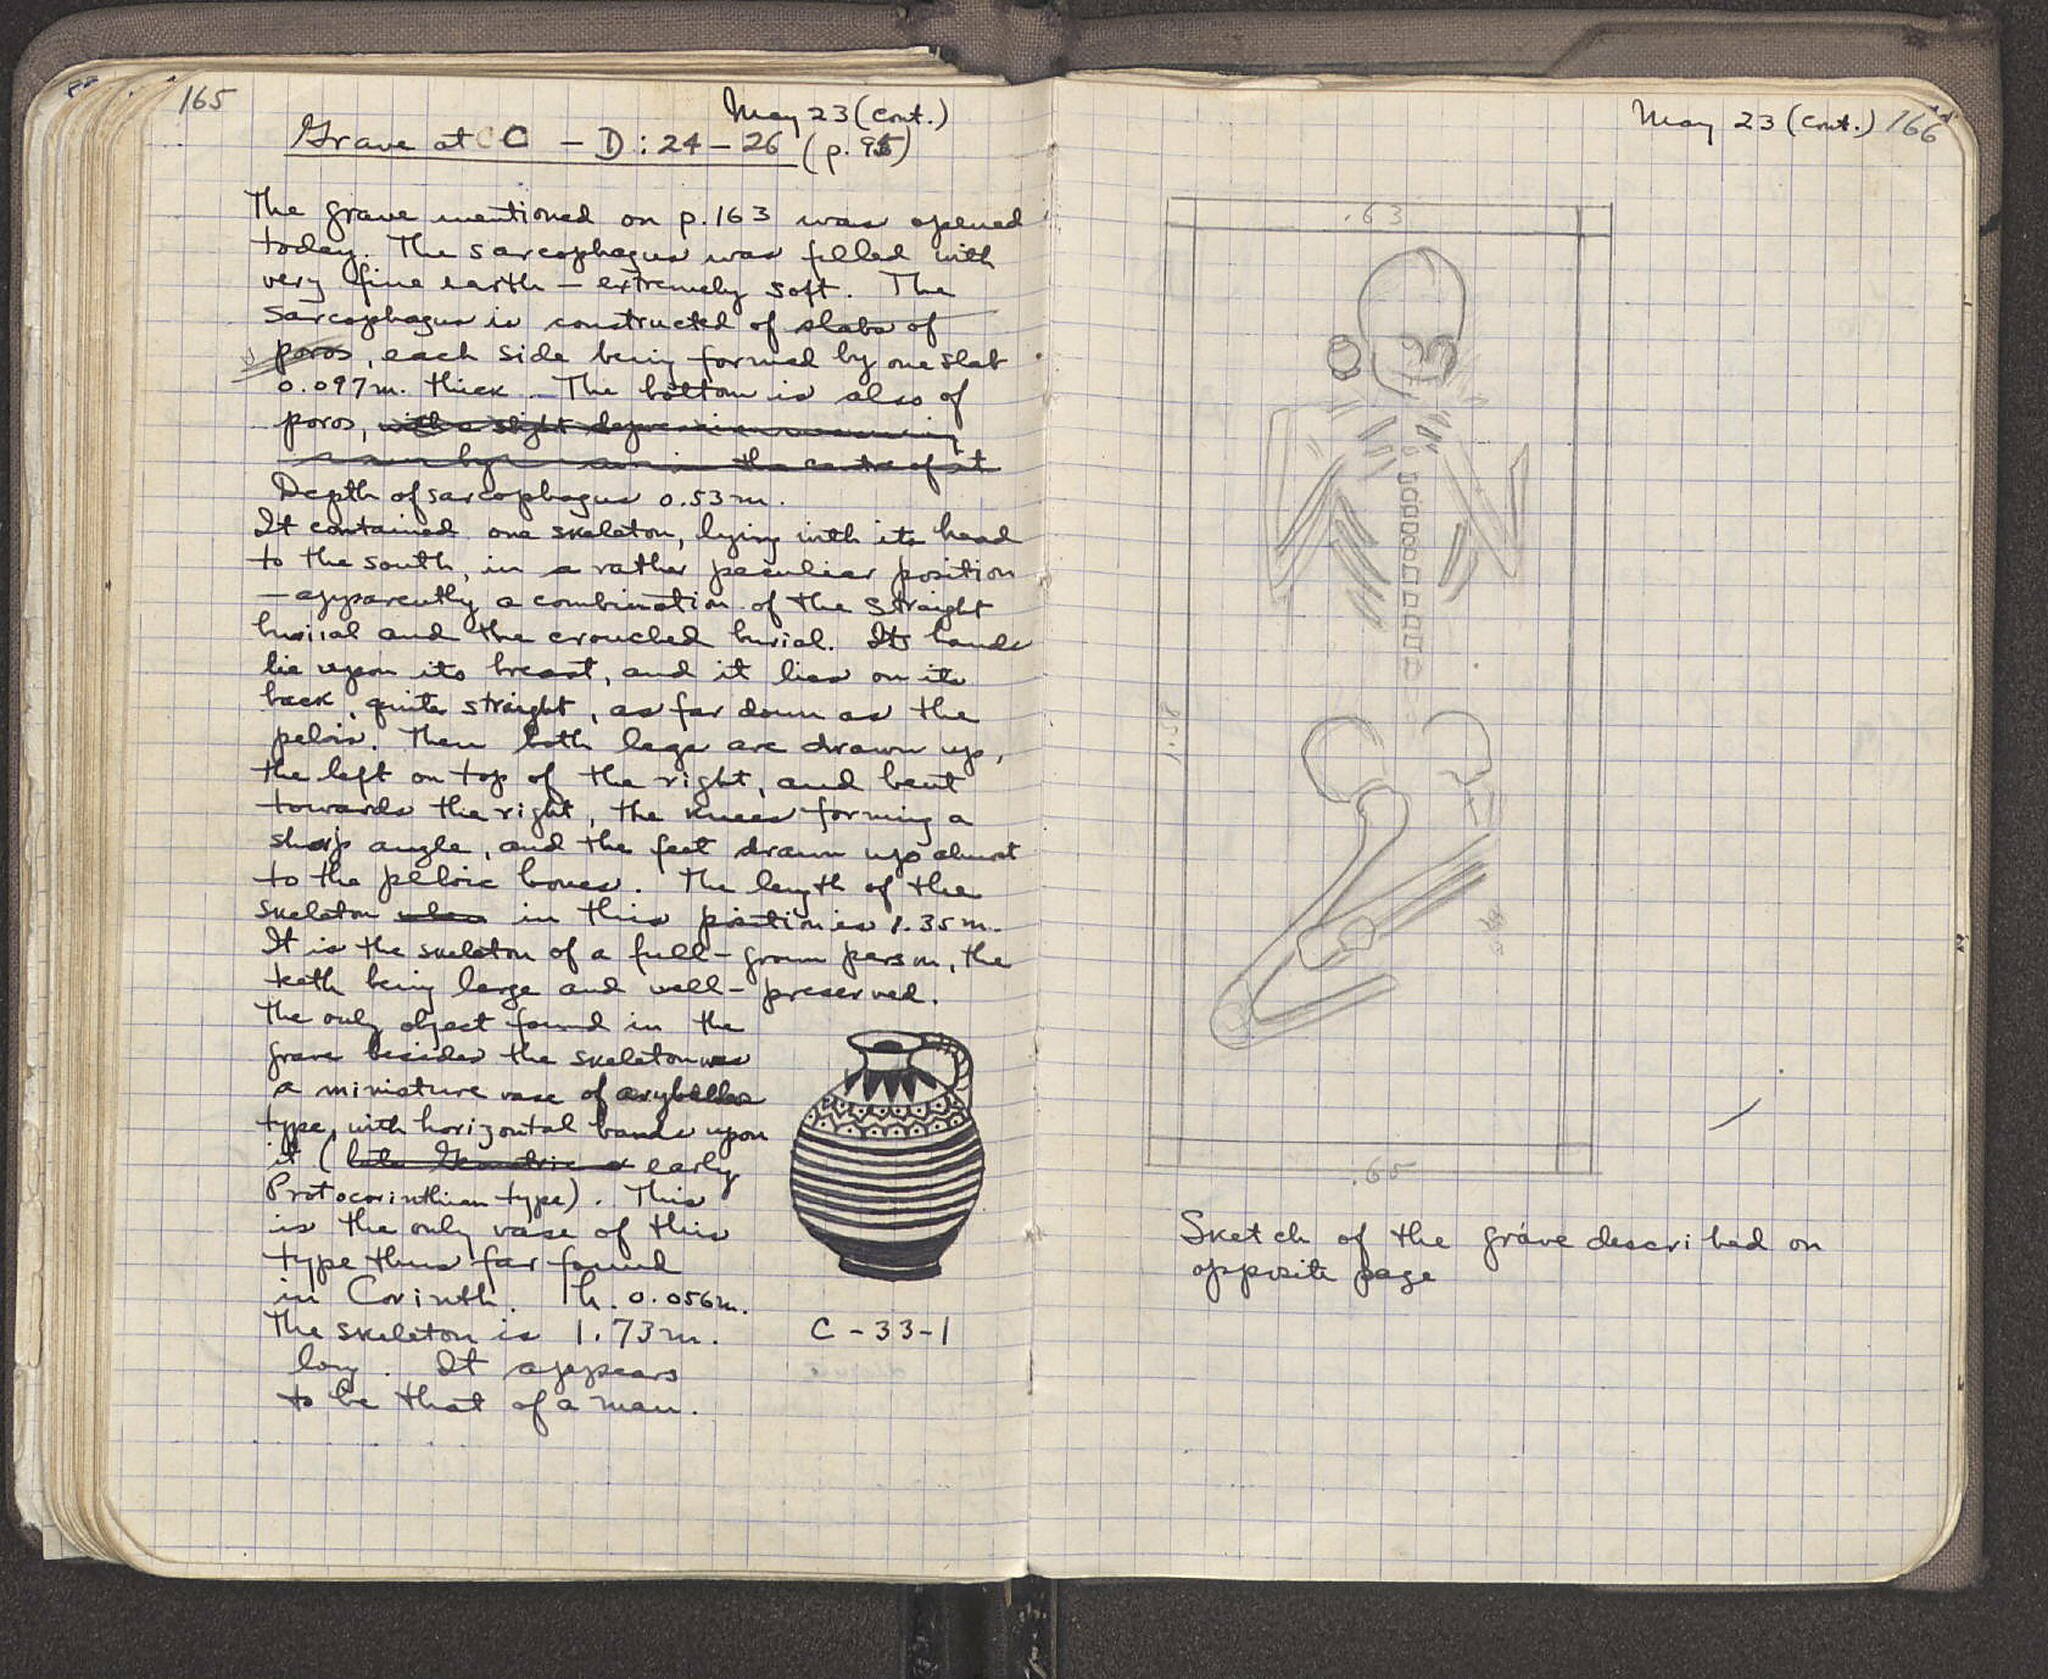 165
May 23 (cont.)
Grave at C – D : 24 – 26 (p. 95)
The grave mentioned on p. 163 was opened
today. The sarcophagus was filled with
very fine earth – extremely soft. The
sarcophagus is constructed of slabs of
poros, each side being formed by one slab
0.097 m. thick. The bottom is also of
poros, with a slight depression
in the centre of it
Depth of sarcophagus 0.53 m.
It contained one skeleton, lying with its head
to the south, in a rather peculiar position
– apparently a combination of the straight
burial and the crouched burial. Its hands
lie upon its breast, and it lies on its
back, quite straight, as far down as the
pelvis. Then both legs are drawn up,
the left on top of the right, and bent
towards the right, the knees forming a
sharp angle, and the feet drawn up almost
to the pelvic bones. The length of the
skeleton when in this position is 1.35 m.
It is the skeleton of a full-grown person, the
teeth being large and well-preserved.
The only object found in the
grave besides the skeleton was
a miniature vase of aryballos
type, with horizontal bands upon
it (late Geometric or early
Protocorinthian type). This
is the only vase of this
type thus far found
in Corinth. h. 0.056 m.
The skeleton is 1.73 m.
long. It appears
to be that of a man.
C-33-1
May 23 (cont.) 166
.63
1.58
.65
Sketch of the grave described on
opposite page